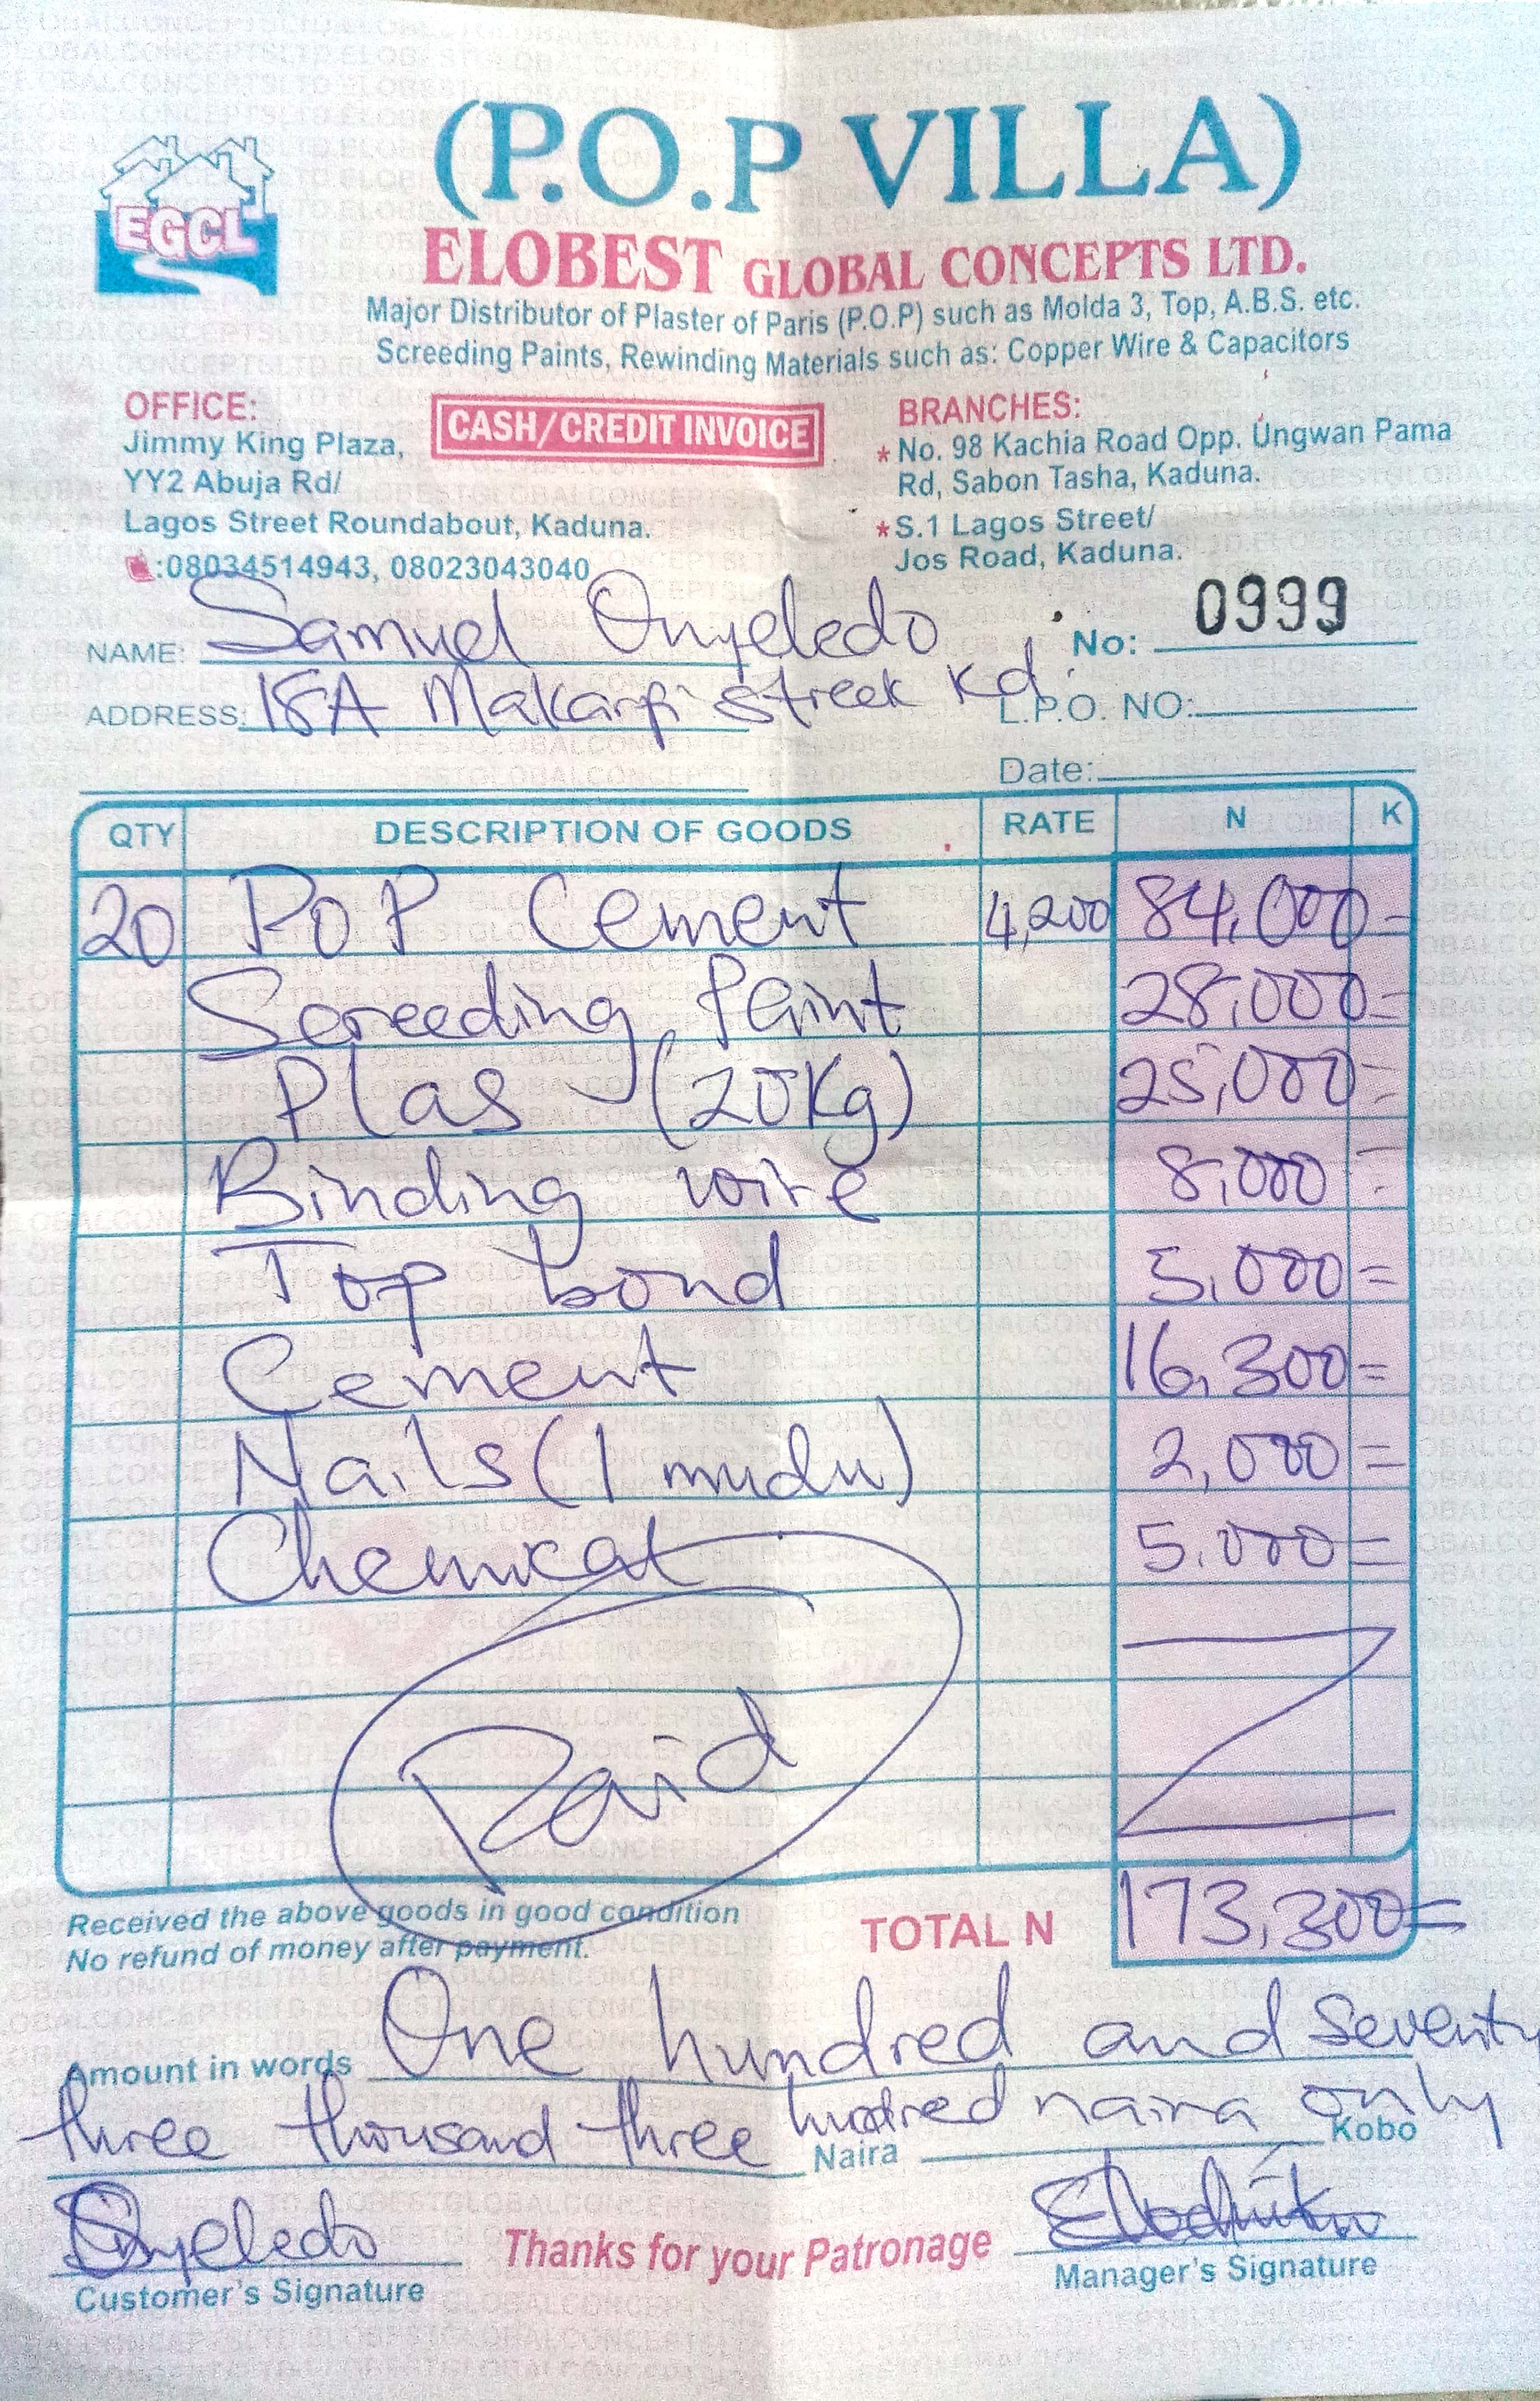 (P.O.P VILLA)
EGCL
ELOBEST GLOBAL CONCEPTS LTD.
Major Distributor of Plaster of Paris (P.O.P) such as Molda 3, Top, A.B.S. etc.
Screeding Paints, Rewinding Materials such as: Copper Wire & Capacitors
OFFICE:
Jimmy King Plaza,
YY2 Abuja Rd/
Lagos Street Roundabout, Kaduna.
:08034514943, 08023043040
CASH/CREDIT INVOICE
BRANCHES:
* No. 98 Kachia Road Opp. Ungwan Pama
Rd, Sabon Tasha, Kaduna.
* S.1 Lagos Street/
Jos Road, Kaduna.
NAME: Samuel Onyeledo No: 0999
ADDRESS: 18A Makarfi street Kd. L.P.O. NO:
Date:
QTY DESCRIPTION OF GOODS RATE N K
20 PoP Cement 4,200 84,000=
Screeding Paint 28,000=
Plas (20kg) 25,000=
Binding wire 8,000=
Top bond 5,000=
Cement 16,300=
Nails (1 mudu) 2,000=
Chemical 5,000=
Paid
Received the above goods in good condition
No refund of money after payment.
TOTAL N 173,300=
Amount in words One hundred and seventy
three thousand three hundred naira only
Naira Kobo
Onyeledo
Customer's Signature
Thanks for your Patronage
Manager's Signature